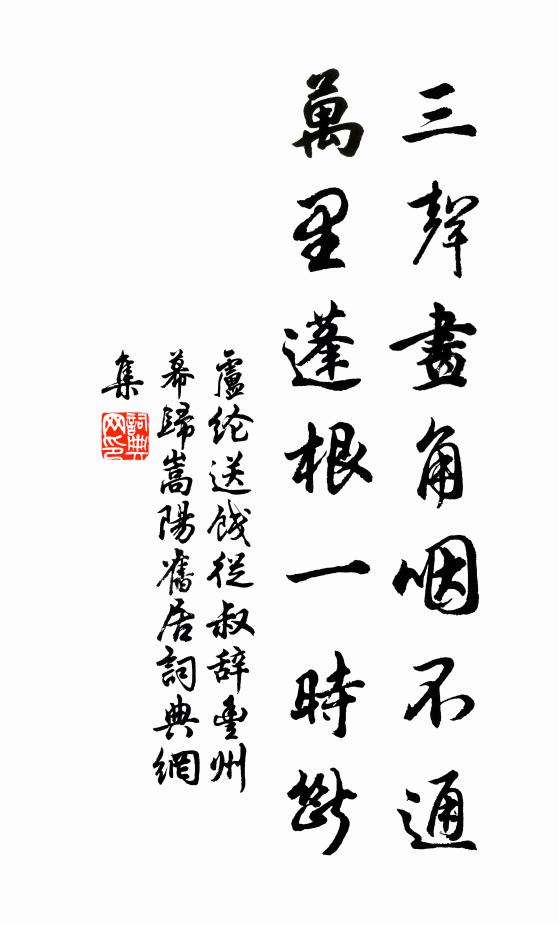 三聲畫角咽不通
萬里蓬根一時斷
盧纶送餞從叔辞豊州
幕歸嵩陽舊居詞典網
集
詞典网印